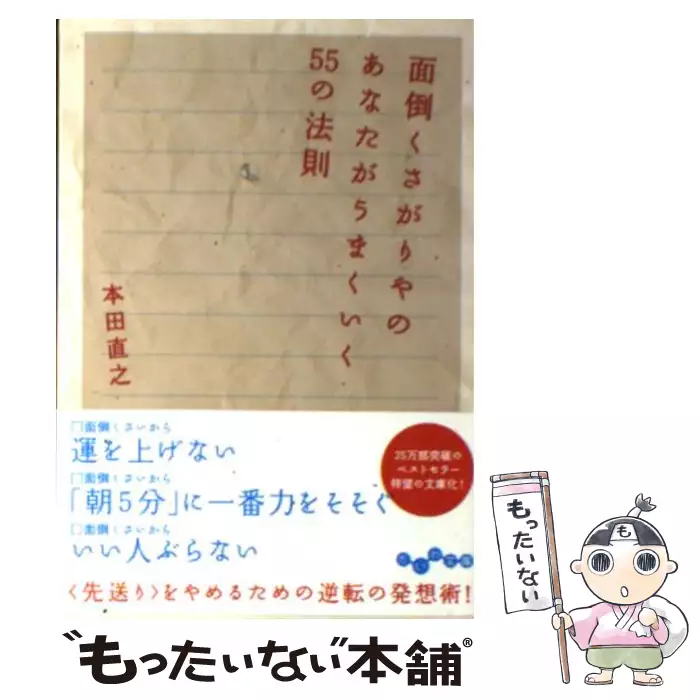 面倒くさがりやの
あなたがうまくいく
55の法則
本田直之
□面倒くさいから
運を上げない
□面倒くさいから
「朝5分」に一番力をそそぐ
□面倒くさいから
いい人ぶらない
25万部突破の
ベストセラー
待望の文庫化!
だいわ文庫
〈先送り〉をやめるための逆転の発想術!
も
もったいない
"もったいない本舗®